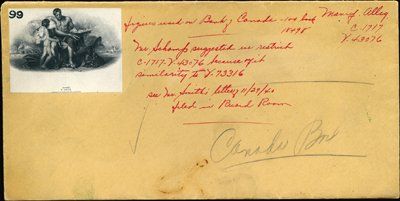 99
figures used on Bank of Canada - 100 back
18498
Manuf. Alleg.
C-1717
V-43076
Mr. Schampf suggested we restrict
C-1717-V-43076 because of it
similarity to V-73316
see Mr. Smith's letter 11/29/60
filed in Record Room
Canada Box